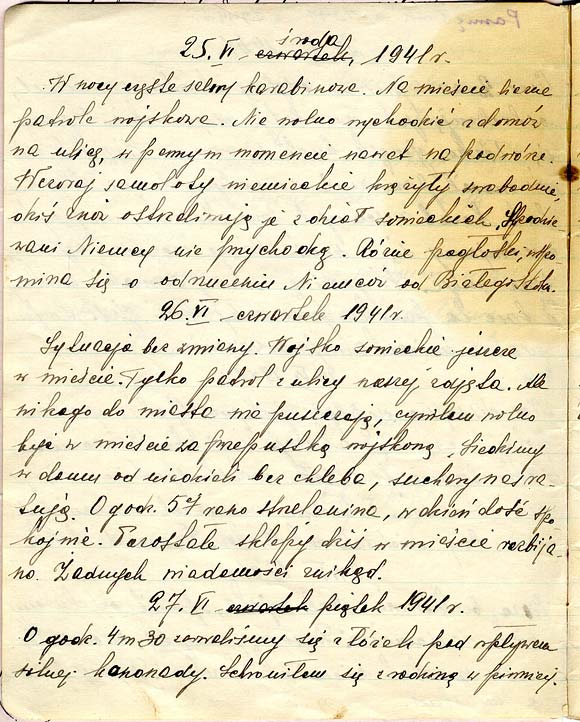 Pamię
25. VI czwartek, środa 1941 r.
W nocy częste salwy karabinowe. Na mieście liczne
patrole wojskowe. Nie wolno wychodzić z domów
na ulicę, w pewnym momencie nawet na podwórze.
Wczoraj samoloty niemieckie krążyły swobodnie,
dziś znów ostrzeliwują je z dział sowieckich. Spodzie-
wani Niemcy nie przychodzą. Różne pogłoski, wspo-
mina się o odrzuceniu Niemców od Białegostoku.
26. VI czwartek 1941 r.
Sytuacja bez zmiany. Wojsko sowieckie jeszcze
w mieście. Tylko patrol z ulicy naszej zdjęto. Ale
nikogo do miasta nie puszczają, cywilom wolno
być w mieście za przepustką wojskową. Siedzimy
w domu od niedzieli bez chleba, suchary nas ra-
tują. O godz. 5-7 rano strzelanina, w dzień dość spo-
kojnie. Pozostałe sklepy dziś w mieście rozbija-
no. Żadnych wiadomości znikąd.
27. VI czwartek piątek 1941 r.
O godz. 4 m 30 zerwaliśmy się z łóżek pod wpływem
silnej kanonady. Schroniłem się z rodziną w piwnicy.